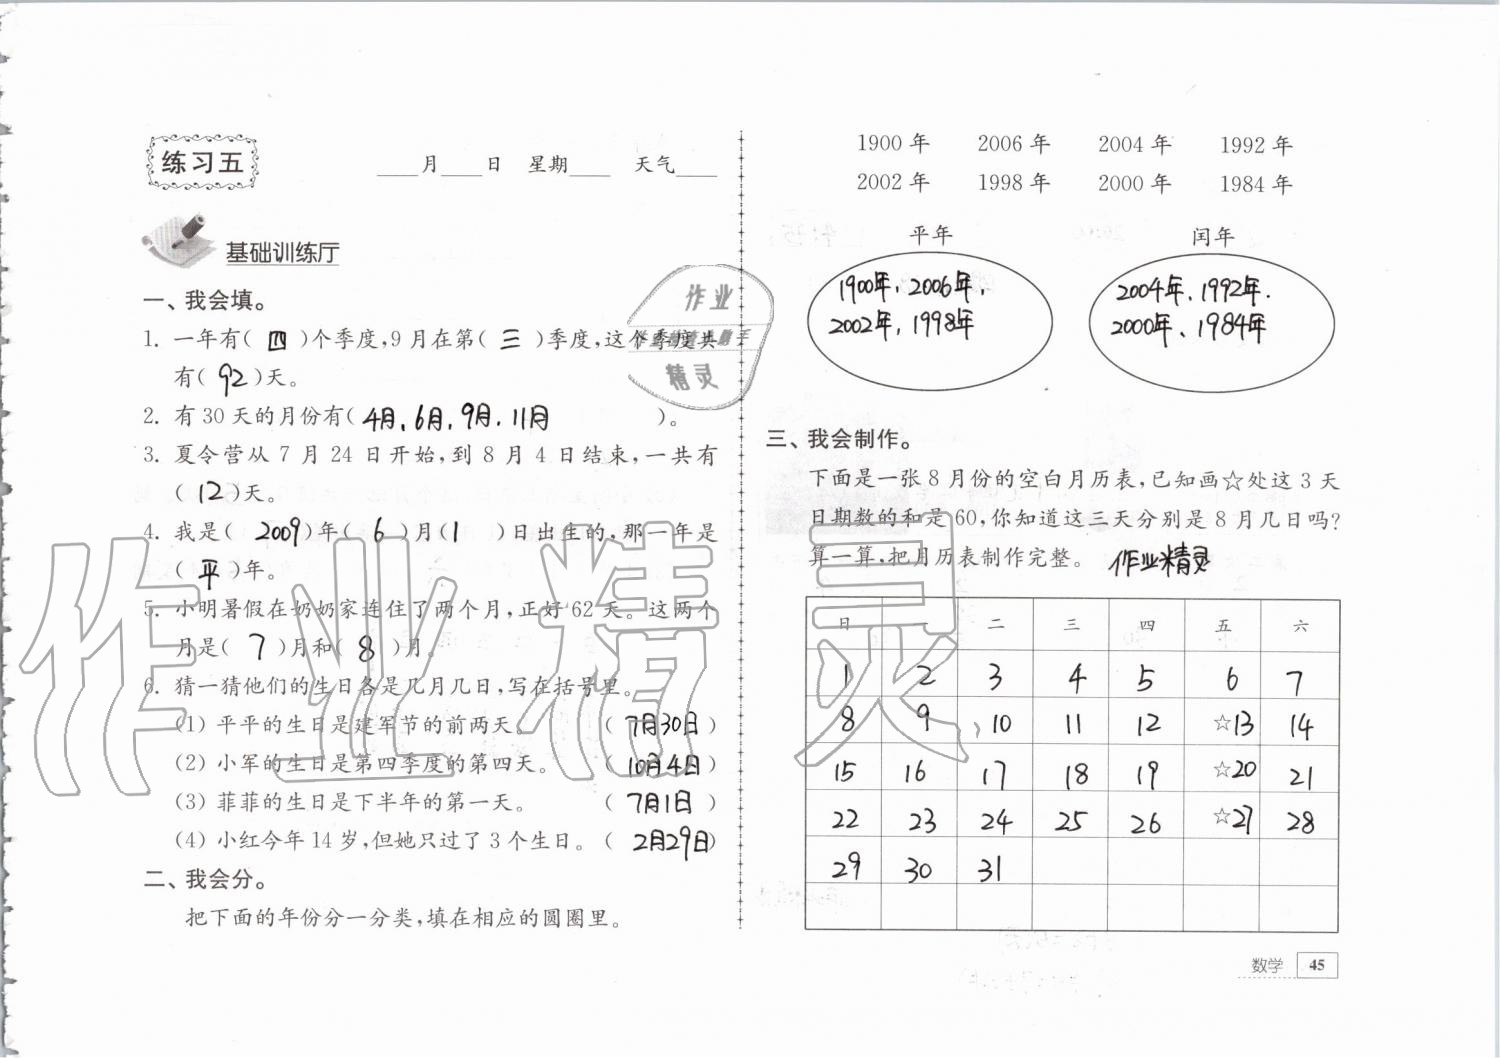 练习五
____月____日 星期____ 天气____
基础训练厅
一、我会填。
1. 一年有( 四 )个季度,9月在第( 三 )季度,这个季度共
有( 92 )天。
2. 有30天的月份有( 4月、6月、9月、11月 )。
3. 夏令营从7月24日开始,到8月4日结束,一共有
( 12 )天。
4. 我是( 2009 )年( 6 )月( 1 )日出生的,那一年是
( 平 )年。
5. 小明暑假在奶奶家连住了两个月,正好62天。这两个
月是( 7 )月和( 8 )月。
6. 猜一猜他们的生日各是几月几日,写在括号里。
(1) 平平的生日是建军节的前两天。 ( 7月30日 )
(2) 小军的生日是第四季度的第四天。 ( 10月4日 )
(3) 菲菲的生日是下半年的第一天。 ( 7月1日 )
(4) 小红今年14岁,但她只过了3个生日。( 2月29日 )
二、我会分。
把下面的年份分一分类,填在相应的圆圈里。
1900年 2006年 2004年 1992年
2002年 1998年 2000年 1984年
平年 闰年
1900年、2006年、
2002年,1998年
2004年、1992年.
2000年、1984年
三、我会制作。
下面是一张8月份的空白月历表,已知画☆处这3天
日期数的和是60,你知道这三天分别是8月几日吗?
算一算,把月历表制作完整。 作业精灵
日 一 二 三 四 五 六
1 2 3 4 5 6 7
8 9 10 11 12 ☆13 14
15 16 17 18 19 ☆20 21
22 23 24 25 26 ☆27 28
29 30 31
数学 45
作业
精灵
作业精灵